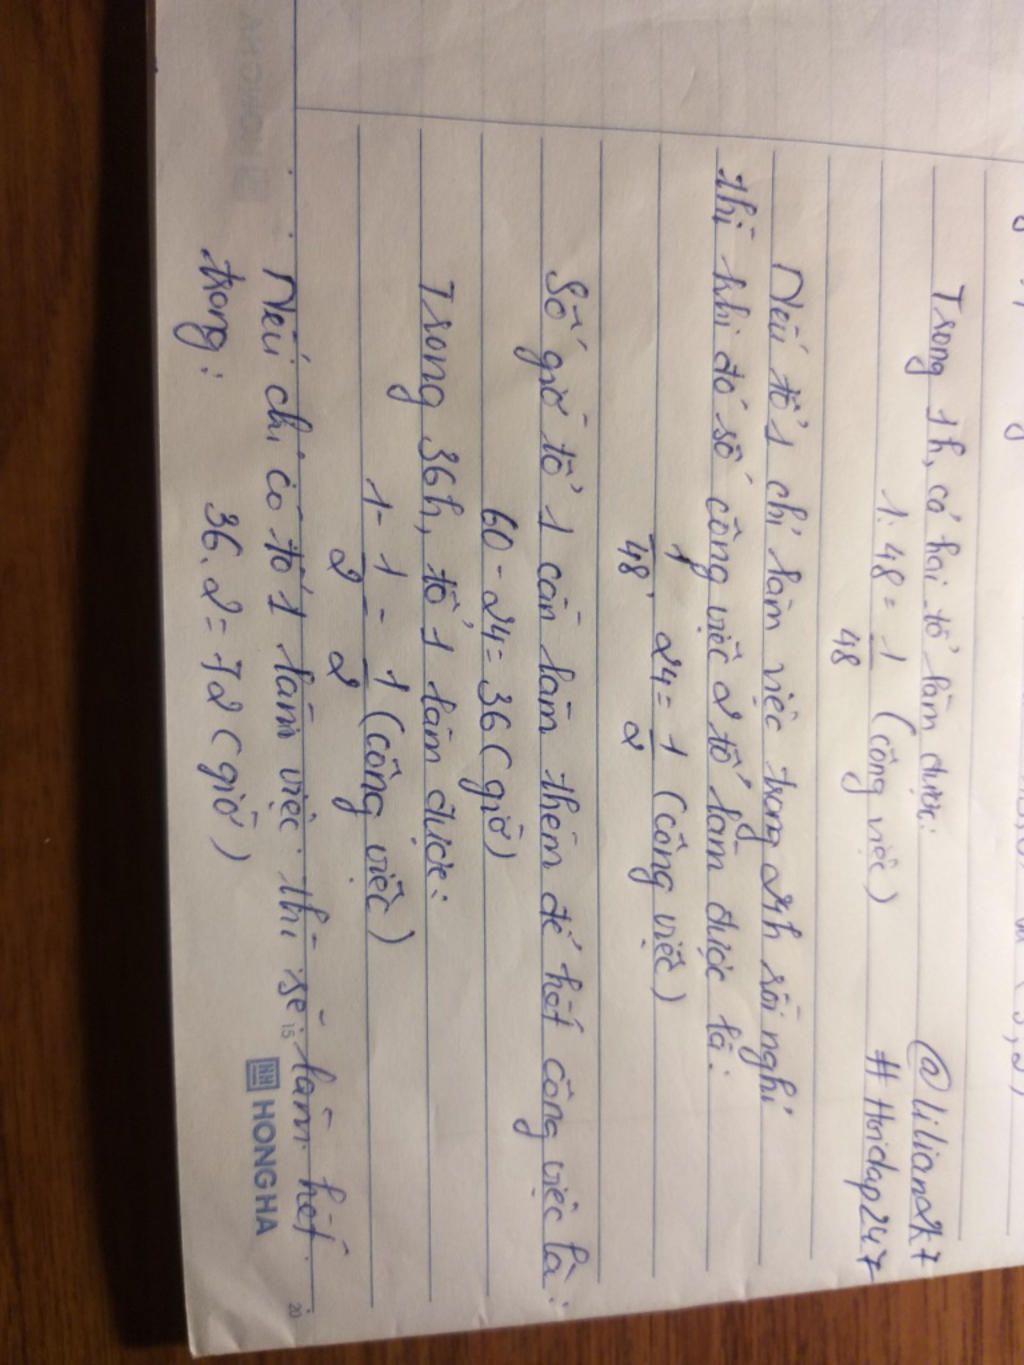 Trong 1h, cả hai tổ làm được: @lilian2k7
1:48 = 1/48 (công việc) # Hoidap247
Nếu tổ 1 chỉ làm việc trong 24h rồi nghỉ
thì khi đó số công việc 2 tổ làm được là:
1/48 . 24 = 1/2 (công việc)
Số giờ tổ 1 cần làm thêm để hết công việc là:
60 - 24 = 36 (giờ)
Trong 36h, tổ 1 làm được:
1 - 1/2 = 1/2 (công việc)
Nếu chỉ có tổ 1 làm việc thì sẽ làm hết
trong:
36.2 = 72 (giờ)
15
HONG HA
20